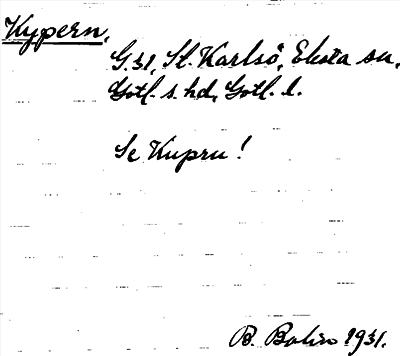 Kypern.
G. 31, St. Karlsö, Eksta sn,
Gotl. s. hd, Gotl. l.
Se Kupru!
B. Bolin 1931.